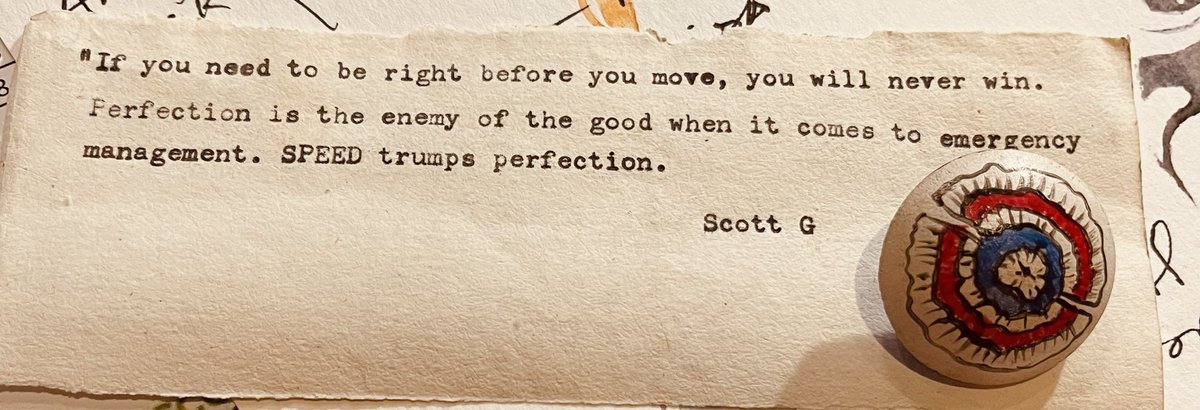 "If you need to be right before you move, you will never win.
Perfection is the enemy of the good when it comes to emergency
management. SPEED trumps perfection.
Scott G